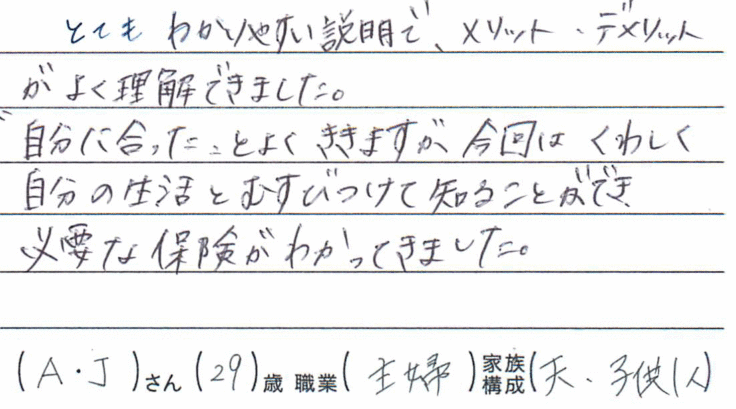 とても わかりやすい説明で、メリット・デメリット
がよく理解できました。
自分に合った…とよくききますが、今回はくわしく
自分の生活とむすびつけて知ることができ
必要な保険がわかってきました。
(A・J)さん(29)歳 職業(主婦)家族構成(夫、子供1人)